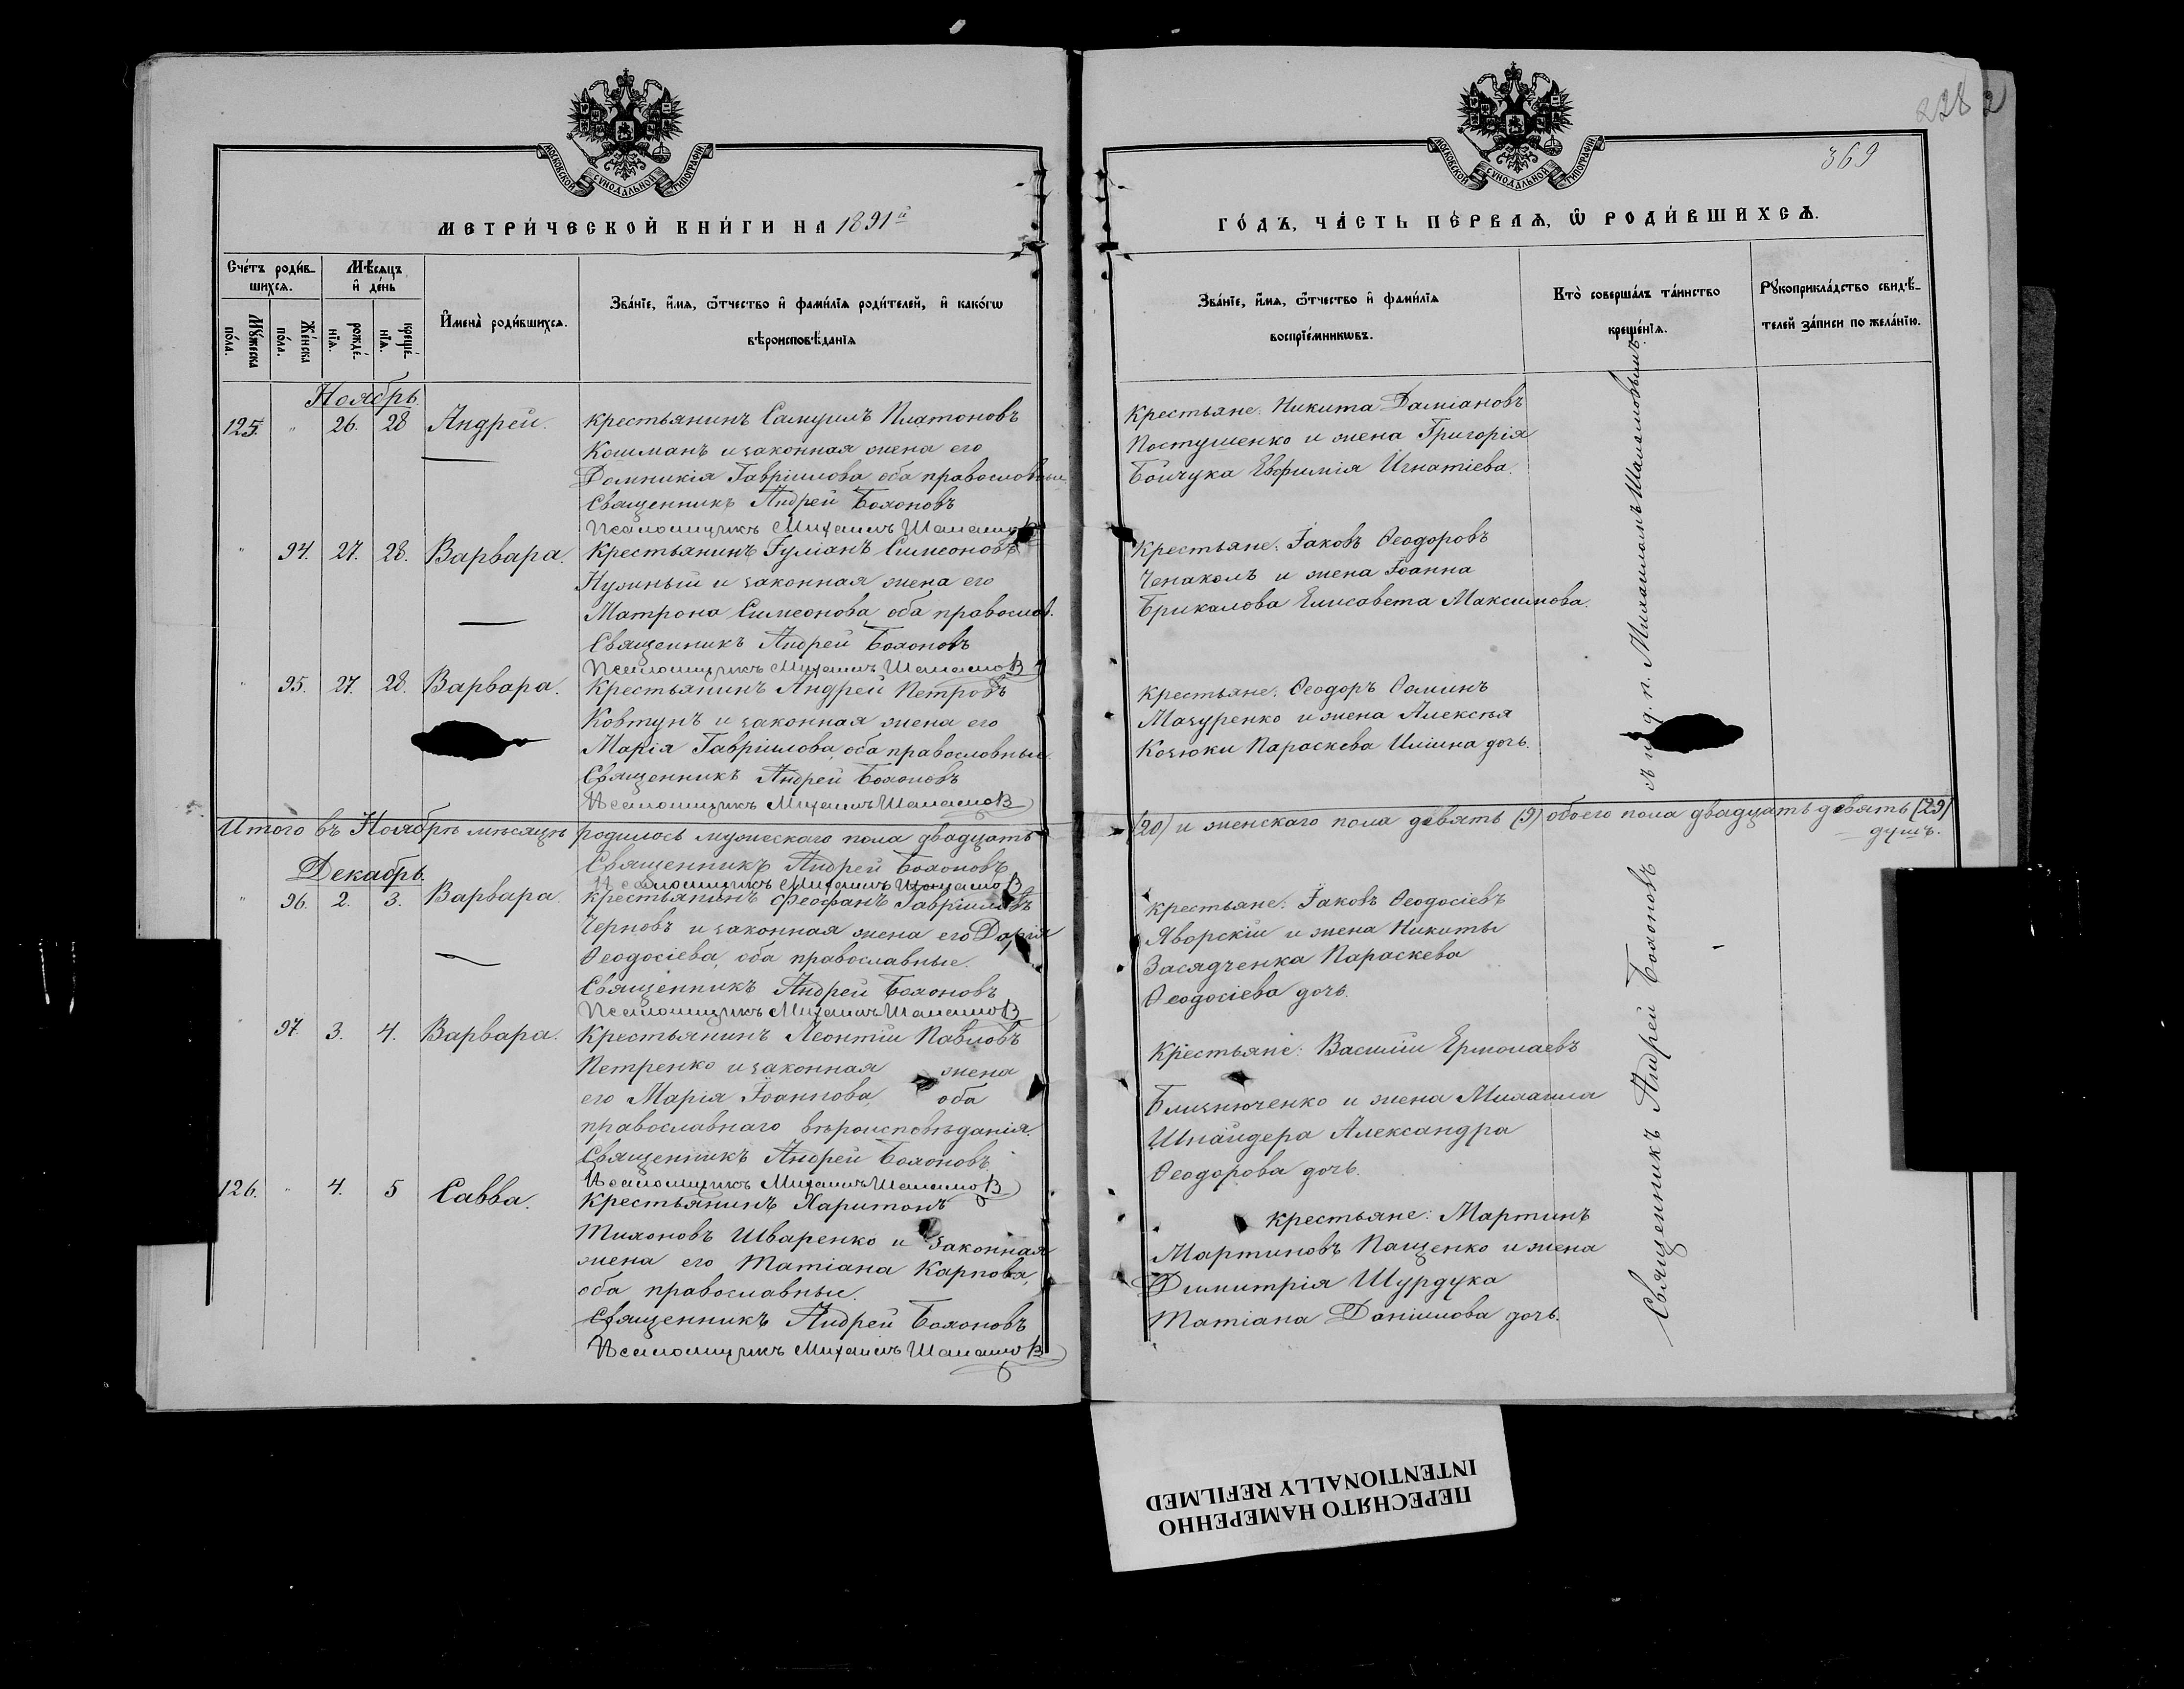 228
2
369
МОСКОВСКОЙ СУНОДАЛЬНОЙ ТИПОГРАФІИ
МОСКОВСКОЙ СУНОДАЛЬНОЙ ТИПОГРАФІИ
МЕТРИ́ЧЕСКОЙ КНИ́ГИ НА 1891й
ГО́ДЪ, ЧА́СТЬ ПЕ́РВАѦ, Ѿ РОДИ́ВШИХСѦ.
Сче́тъ роди́в-
шихсѧ.
Мꙋ́жеска по́ла.
Же́нска по́ла.
Мѣ́сѧцъ
и҆ де́нь
рожде́-нїѧ.
креще́-нїѧ.
И҆мена̀ роди́вшихсѧ.
Зва́нїе, и҆́мѧ, ѻ҆́тчество и҆ фами́лїѧ роди́телей, и҆ како́гѡ
вѣроисповѣ́данїѧ
Зва́нїе, и҆́мѧ, ѻ҆́тчество и҆ фами́лїѧ
воспрїе́мникѡвъ.
Кто̀ соверша́лъ та́инство
креще́нїѧ.
Рꙋкоприкла́дство свидѣ́-
телей за́писи по жела́нїю.
Ноябрь
125. " 26. 28 Андрей. Крестьянинъ Самуилъ Платоновъ
Кошманъ и законная жена его
Домникія Гавріилова, оба православные
Священникъ Андрей Бохоновъ
Псаломщикъ Михаилъ
Крестьяне: Никита Даміановъ
Постушенко и жена Григорія
Бойчука Евфимія Игнатіева.
" 94. 27. 28. Варвара. Крестьянинъ Іуліанъ Симеоновъ
Нужный и законная жена его
Матрона Симеонова, оба православ.
Священникъ Андрей Бохоновъ
Псаломщикъ Михаилъ
Крестьяне: Іаковъ Ѳеодоровъ
Ченаколъ и жена Іоанна
Брикалова Елисавета Максимова.
" 95. 27. 28. Варвара. Крестьянинъ Андрей Петровъ
Ковтунъ и законная жена его
Марія Гавріилова, оба православные.
Священникъ Андрей Бохоновъ
Псаломщикъ Михаилъ
Крестьяне: Ѳеодоръ Ѳоминъ
Мазуренко и жена Алексѣя
Козюки Параскева Иліина дочь.
Итого въ Ноябрѣ мѣсяцѣ родилось мужескаго пола двадцать (20) и женскаго пола девять (9) обоего пола двадцать девять (29)
душъ.
Священникъ Андрей Бохоновъ
Псаломщикъ Михаилъ
Декабрь.
" 96. 2. 3. Варвара. Крестьянинъ Ѳеофанъ Гавріиловъ
Черновъ и законная жена его Дарія
Ѳеодосіева, оба православные.
Священникъ Андрей Бохоновъ
Псаломщикъ Михаилъ
Крестьяне: Іаковъ Ѳеодосіевъ
Яворскій и жена Никиты
Засядченка Параскева
Ѳеодосіева дочь.
" 97. 3. 4. Варвара. Крестьянинъ Леонтій Павловъ
Петренко и законная жена
его Марія Іоаннова, оба
православнаго вѣроисповѣданія.
Священникъ Андрей Бохоновъ
Псаломщикъ Михаилъ
Крестьяне: Василій Ермолаевъ
Близнюченко и жена Михаила
Шнайдера Александра
Ѳеодорова дочь.
126. " 4. 5 Савва. Крестьянинъ Харитонъ
Тихоновъ Шваренко и законная
жена его Татіана Карпова,
оба православные.
Священникъ Андрей Бохоновъ
Псаломщикъ Михаилъ
Крестьяне: Мартинъ
Мартиновъ Пащенко и жена
Димитрія Шурдука
Татіана Даніилова дочь.
Священникъ Андрей Бохоновъ съ и. д. п. Михаиломъ
ПЕРЕСНЯТО НАМЕРЕННО
INTENTIONALLY REFILMED